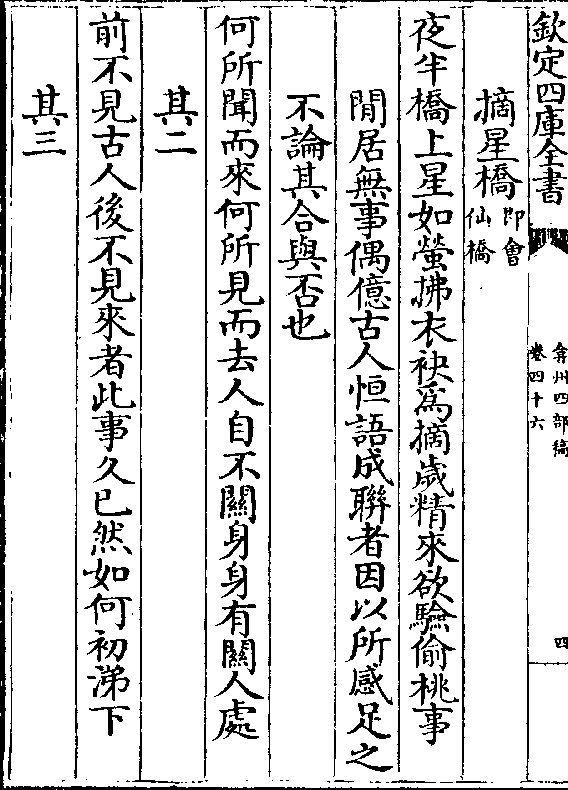 欽定四庫全書
弇州四部稿
卷四十六
四
摘星橋即會
仙橋
夜半橋上星如螢拂衣袂為摘歲精來欲驗偷桃事
閒居無事偶億古人恒語成聯者因以所感足之
不論其合與否也
何所聞而來何所見而去人自不關身身有關人處
其二
前不見古人後不見來者此事久已然如何初涕下
其三